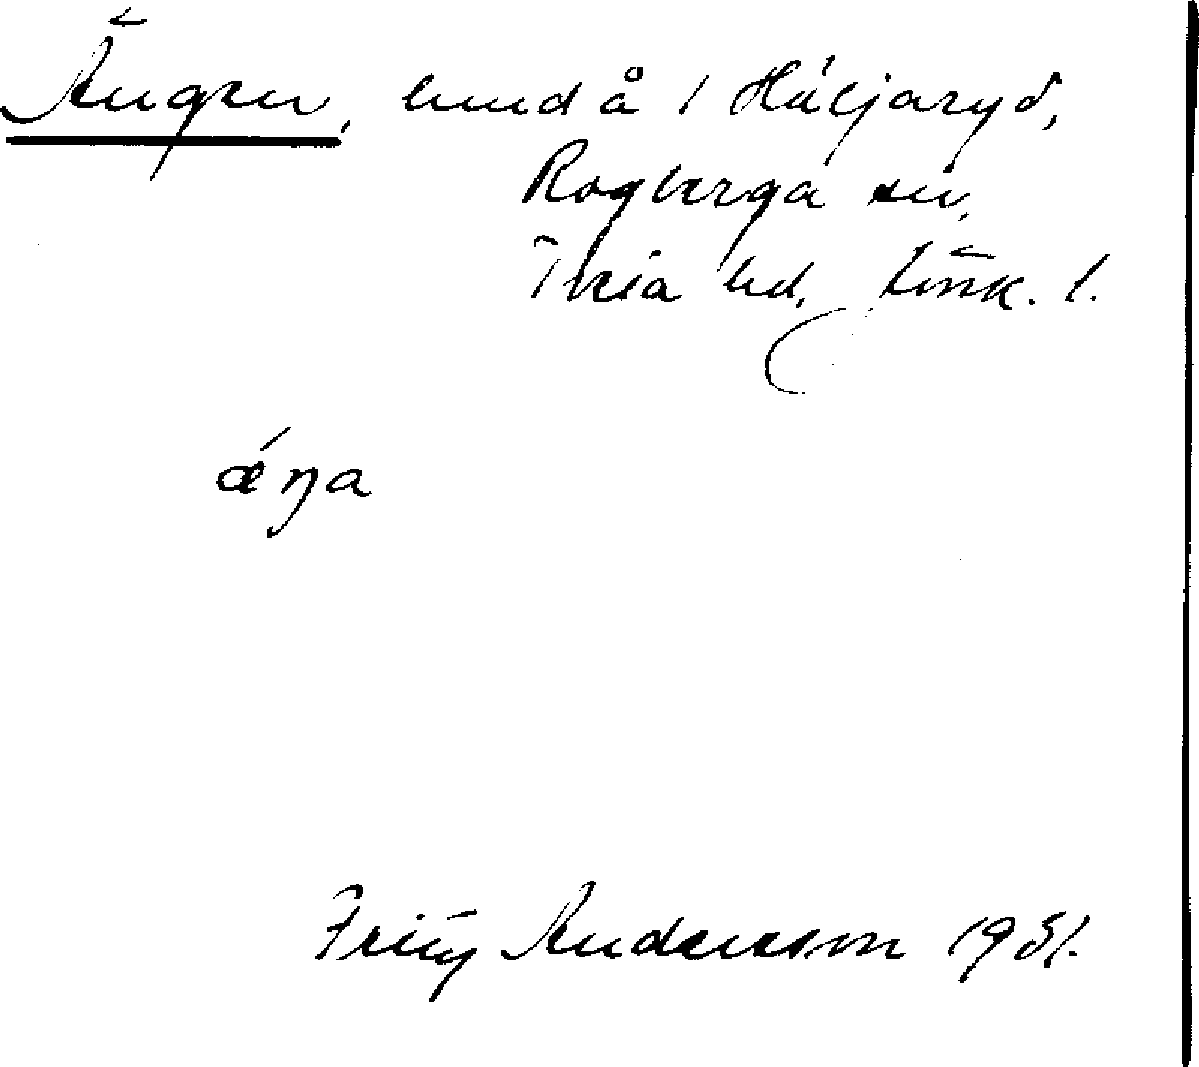 Ängen, hmd å 1 Häljaryd,
Rogberga sn,
Tveta hd, Jönk. l.
ǽŋa
Fritz Andersson 1931.